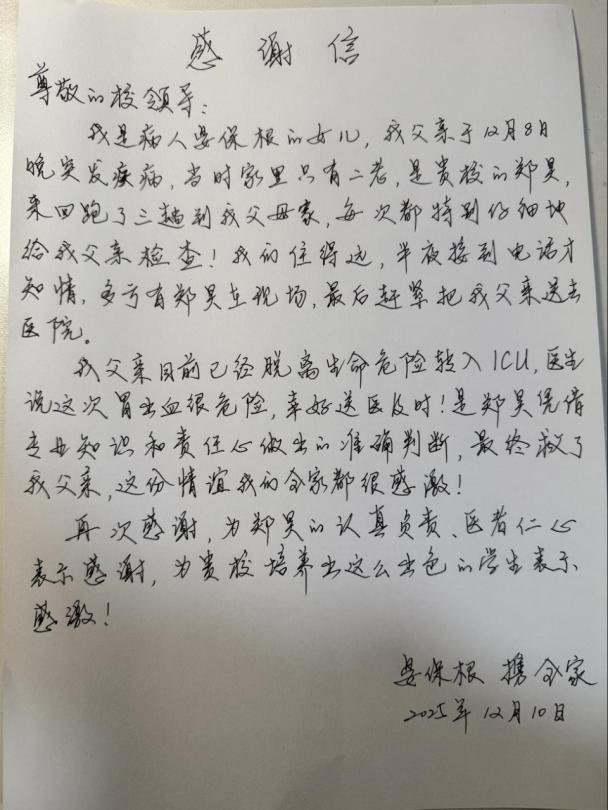 感谢信
尊敬的校领导：
我是病人晏保根的女儿，我父亲于12月8日
晚突发疾病，当时家里只有二老，是贵校的郑昊，
来回跑了三趟到我父母家，每次都特别仔细地
给我父亲检查！我们住得远，半夜接到电话才
知情，多亏有郑昊在现场，最后赶紧把我父亲送去
医院。
我父亲目前已经脱离生命危险转入ICU，医生
说这次胃出血很危险，幸好送医及时！是郑昊凭借
专业知识和责任心做出的准确判断，最终救了
我父亲，这份情谊我们全家都很感激！
再次感谢，为郑昊的认真负责、医者仁心
表示感谢，为贵校培养出这么出色的学生表示
感激！
晏保根 携全家
2025年12月10日